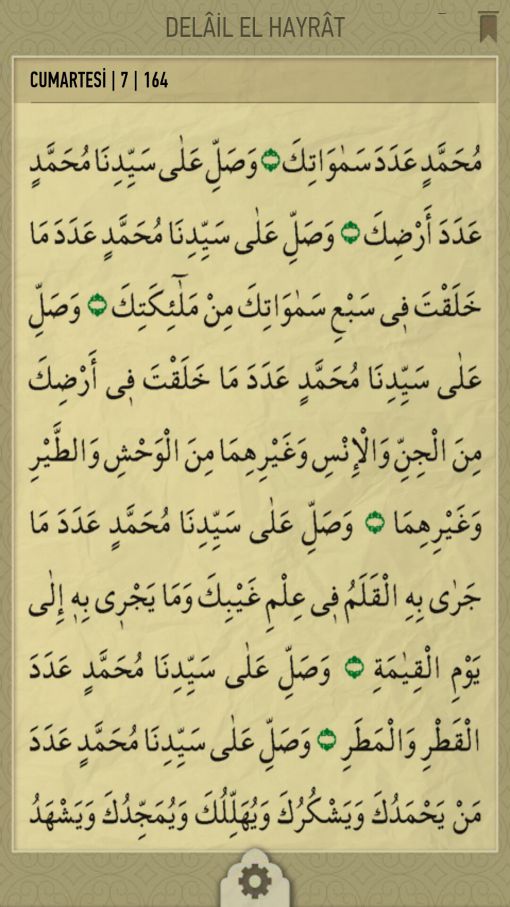 DELÂİL EL HAYRÂT
CUMARTESİ | 7 | 164
مُحَمَّدٍ عَدَدَ سَمٰوَاتِكَ ۝ وَصَلِّ عَلٰى سَيِّدِنَا مُحَمَّدٍ
عَدَدَ أَرْضِكَ ۝ وَصَلِّ عَلٰى سَيِّدِنَا مُحَمَّدٍ عَدَدَ مَا
خَلَقْتَ فِى سَبْعِ سَمٰوَاتِكَ مِنْ مَلٰٓئِكَتِكَ ۝ وَصَلِّ
عَلٰى سَيِّدِنَا مُحَمَّدٍ عَدَدَ مَا خَلَقْتَ فِى أَرْضِكَ
مِنَ الْجِنِّ وَالْإِنْسِ وَغَيْرِهِمَا مِنَ الْوَحْشِ وَالطَّيْرِ
وَغَيْرِهِمَا ۝ وَصَلِّ عَلٰى سَيِّدِنَا مُحَمَّدٍ عَدَدَ مَا
جَرٰى بِهِ الْقَلَمُ فِى عِلْمِ غَيْبِكَ وَمَا يَجْرِى بِهٖ إِلٰى
يَوْمِ الْقِيٰمَةِ ۝ وَصَلِّ عَلٰى سَيِّدِنَا مُحَمَّدٍ عَدَدَ
الْقَطْرِ وَالْمَطَرِ ۝ وَصَلِّ عَلٰى سَيِّدِنَا مُحَمَّدٍ عَدَدَ
مَنْ يَحْمَدُكَ وَيَشْكُرُكَ وَيُهَلِّلُكَ وَيُمَجِّدُكَ وَيَشْهَدُ